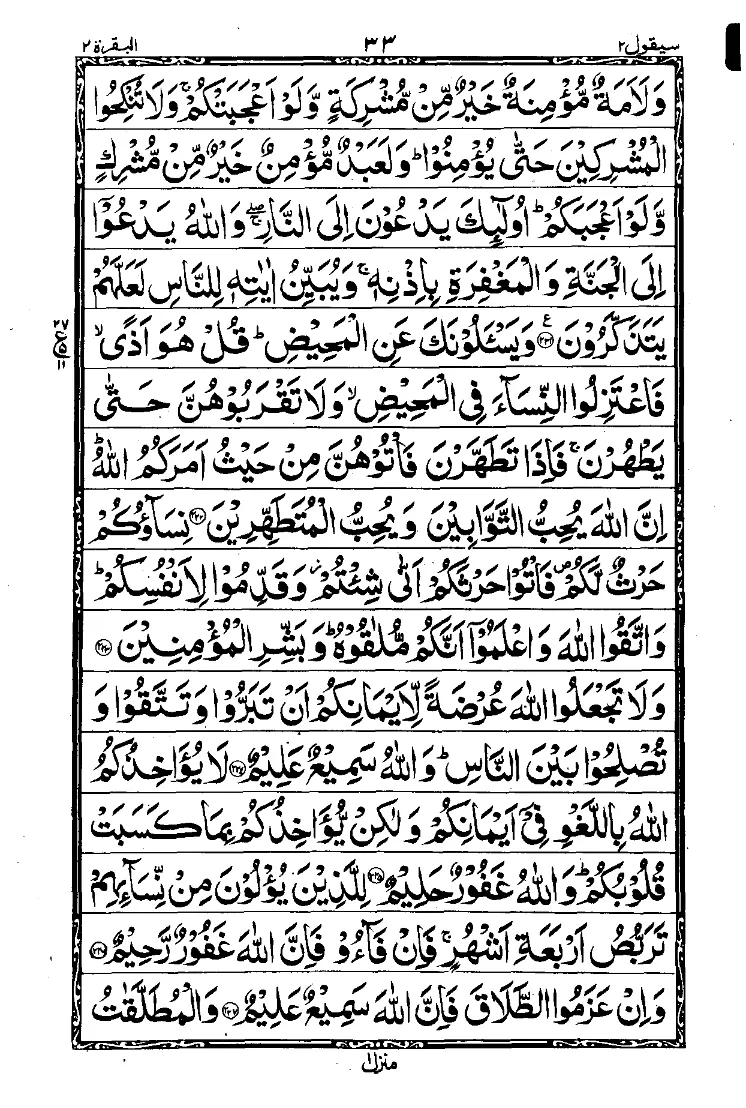 سيقول٢ ٣٣ البقرة ٢
وَلَاَمَةٌ مُّؤْمِنَةٌ خَيْرٌ مِّنْ مُّشْرِكَةٍ وَّلَوْ اَعْجَبَتْكُمْ ۚ وَلَا تُنْكِحُوا
الْمُشْرِكِيْنَ حَتّٰى يُؤْمِنُوْا ؕ وَلَعَبْدٌ مُّؤْمِنٌ خَيْرٌ مِّنْ مُّشْرِكٍ
وَّلَوْ اَعْجَبَكُمْ ؕ اُولٰٓئِكَ يَدْعُوْنَ اِلَى النَّارِ ۖۚ وَاللّٰهُ يَدْعُوْٓا
اِلَى الْجَنَّةِ وَالْمَغْفِرَةِ بِاِذْنِهٖ ۚ وَيُبَيِّنُ اٰيٰتِهٖ لِلنَّاسِ لَعَلَّهُمْ
يَتَذَكَّرُوْنَ ﴿۲۲۱﴾ وَيَسْـَٔلُوْنَكَ عَنِ الْمَحِيْضِ ؕ قُلْ هُوَ اَذًى ۙ
٢٧
ع
٥
١١
فَاعْتَزِلُوا النِّسَآءَ فِى الْمَحِيْضِ ۙ وَلَا تَقْرَبُوْهُنَّ حَتّٰى
يَطْهُرْنَ ۚ فَاِذَا تَطَهَّرْنَ فَاْتُوْهُنَّ مِنْ حَيْثُ اَمَرَكُمُ اللّٰهُ ؕ
اِنَّ اللّٰهَ يُحِبُّ التَّوَّابِيْنَ وَيُحِبُّ الْمُتَطَهِّرِيْنَ ﴿۲۲۲﴾ نِسَآؤُكُمْ
حَرْثٌ لَّكُمْ ۪ فَاْتُوْا حَرْثَكُمْ اَنّٰى شِئْتُمْ ؗ وَقَدِّمُوْا لِاَنْفُسِكُمْ ؕ
وَاتَّقُوا اللّٰهَ وَاعْلَمُوْٓا اَنَّكُمْ مُّلٰقُوْهُ ؕ وَبَشِّرِ الْمُؤْمِنِيْنَ ﴿۲۲۳﴾
وَلَا تَجْعَلُوا اللّٰهَ عُرْضَةً لِّاَيْمَانِكُمْ اَنْ تَبَرُّوْا وَتَتَّقُوْا وَ
تُصْلِحُوْا بَيْنَ النَّاسِ ؕ وَاللّٰهُ سَمِيْعٌ عَلِيْمٌ ﴿۲۲۴﴾ لَا يُؤَاخِذُكُمُ
اللّٰهُ بِاللَّغْوِ فِىْٓ اَيْمَانِكُمْ وَلٰكِنْ يُّؤَاخِذُكُمْ بِمَا كَسَبَتْ
قُلُوْبُكُمْ ؕ وَاللّٰهُ غَفُوْرٌ حَلِيْمٌ ﴿۲۲۵﴾ لِلَّذِيْنَ يُؤْلُوْنَ مِنْ نِّسَآئِهِمْ
تَرَبُّصُ اَرْبَعَةِ اَشْهُرٍ ۚ فَاِنْ فَآءُوْ فَاِنَّ اللّٰهَ غَفُوْرٌ رَّحِيْمٌ ﴿۲۲۶﴾
وَاِنْ عَزَمُوا الطَّلَاقَ فَاِنَّ اللّٰهَ سَمِيْعٌ عَلِيْمٌ ﴿۲۲۷﴾ وَالْمُطَلَّقٰتُ
منزل١